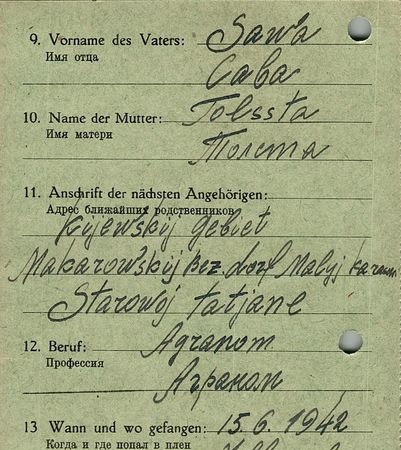 9. Vorname des Vaters: Sawa
Имя отца
Сава
10. Name der Mutter: Tolssta
Имя матери Толста
11. Anschrift der nächsten Angehörigen:
Адрес ближайших родственников
Kijewskij Gebiet
Makarowskij bez. dorf Malyj
Starowoj tatjane
12. Beruf: Agranom
Профессия Аграном
13 Wann und wo gefangen: 15.6.1942
Когда и где попал в плен